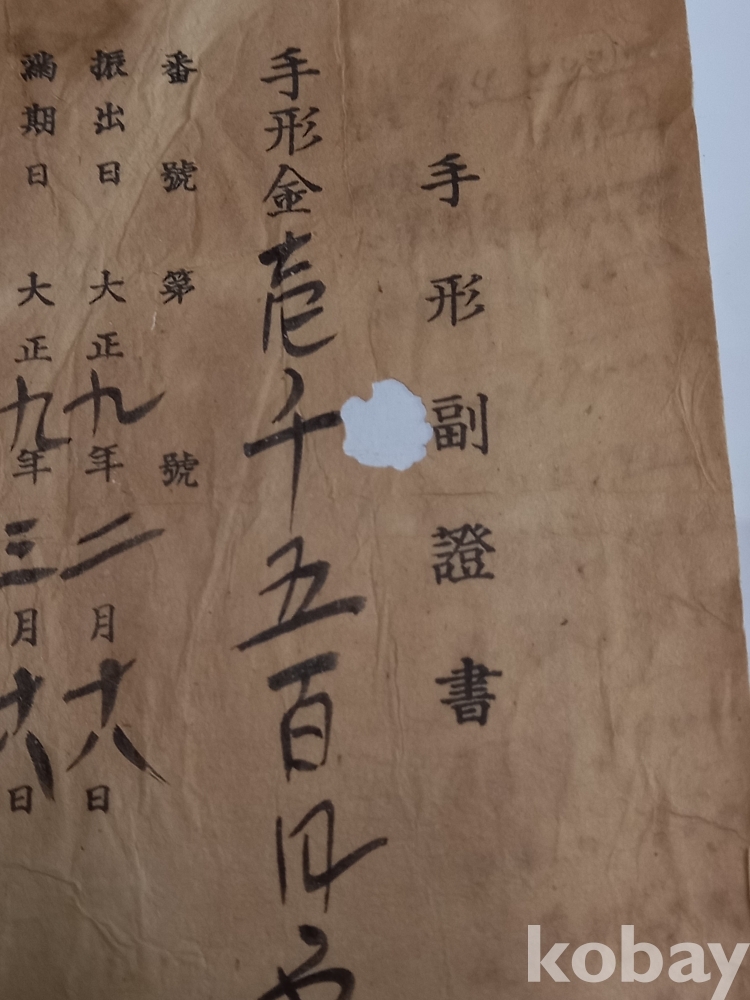 手形副證書
手形金壱千五百円也
番號 第 號
振出日 大正九年二月十八日
滿期日 大正九年三月十八日
kobay